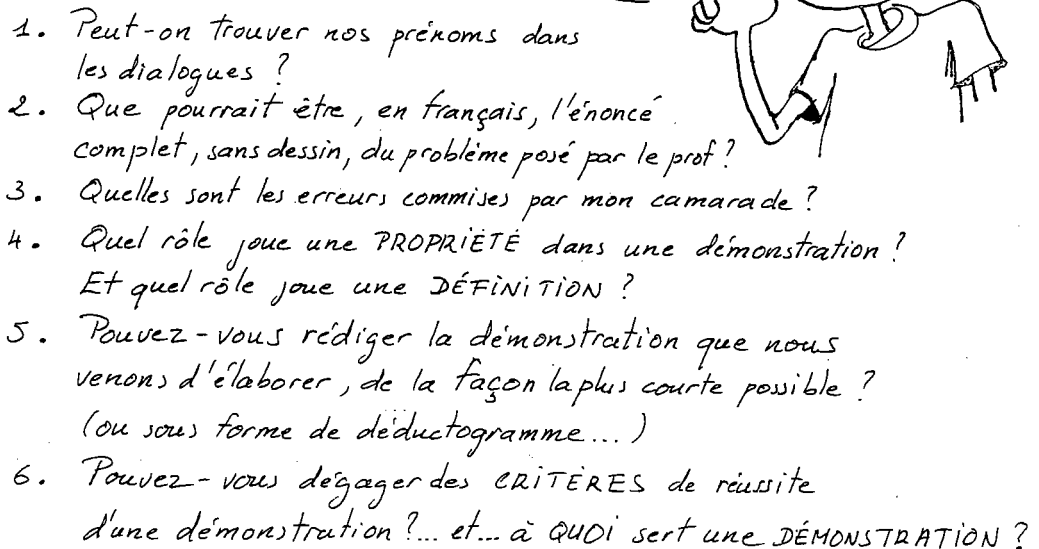 1. Peut-on trouver nos prénoms dans
les dialogues ?
2. Que pourrait être, en français, l'énoncé
complet, sans dessin, du problème posé par le prof ?
3. Quelles sont les erreurs commises par mon camarade ?
4. Quel rôle joue une PROPRIÉTÉ dans une démonstration ?
Et quel rôle joue une DÉFINITION ?
5. Pouvez-vous rédiger la démonstration que nous
venons d'élaborer, de la façon la plus courte possible ?
(ou sous forme de déductogramme...)
6. Pouvez-vous dégager des CRITÈRES de réussite
d'une démonstration ?... et... à QUOI sert une DÉMONSTRATION ?